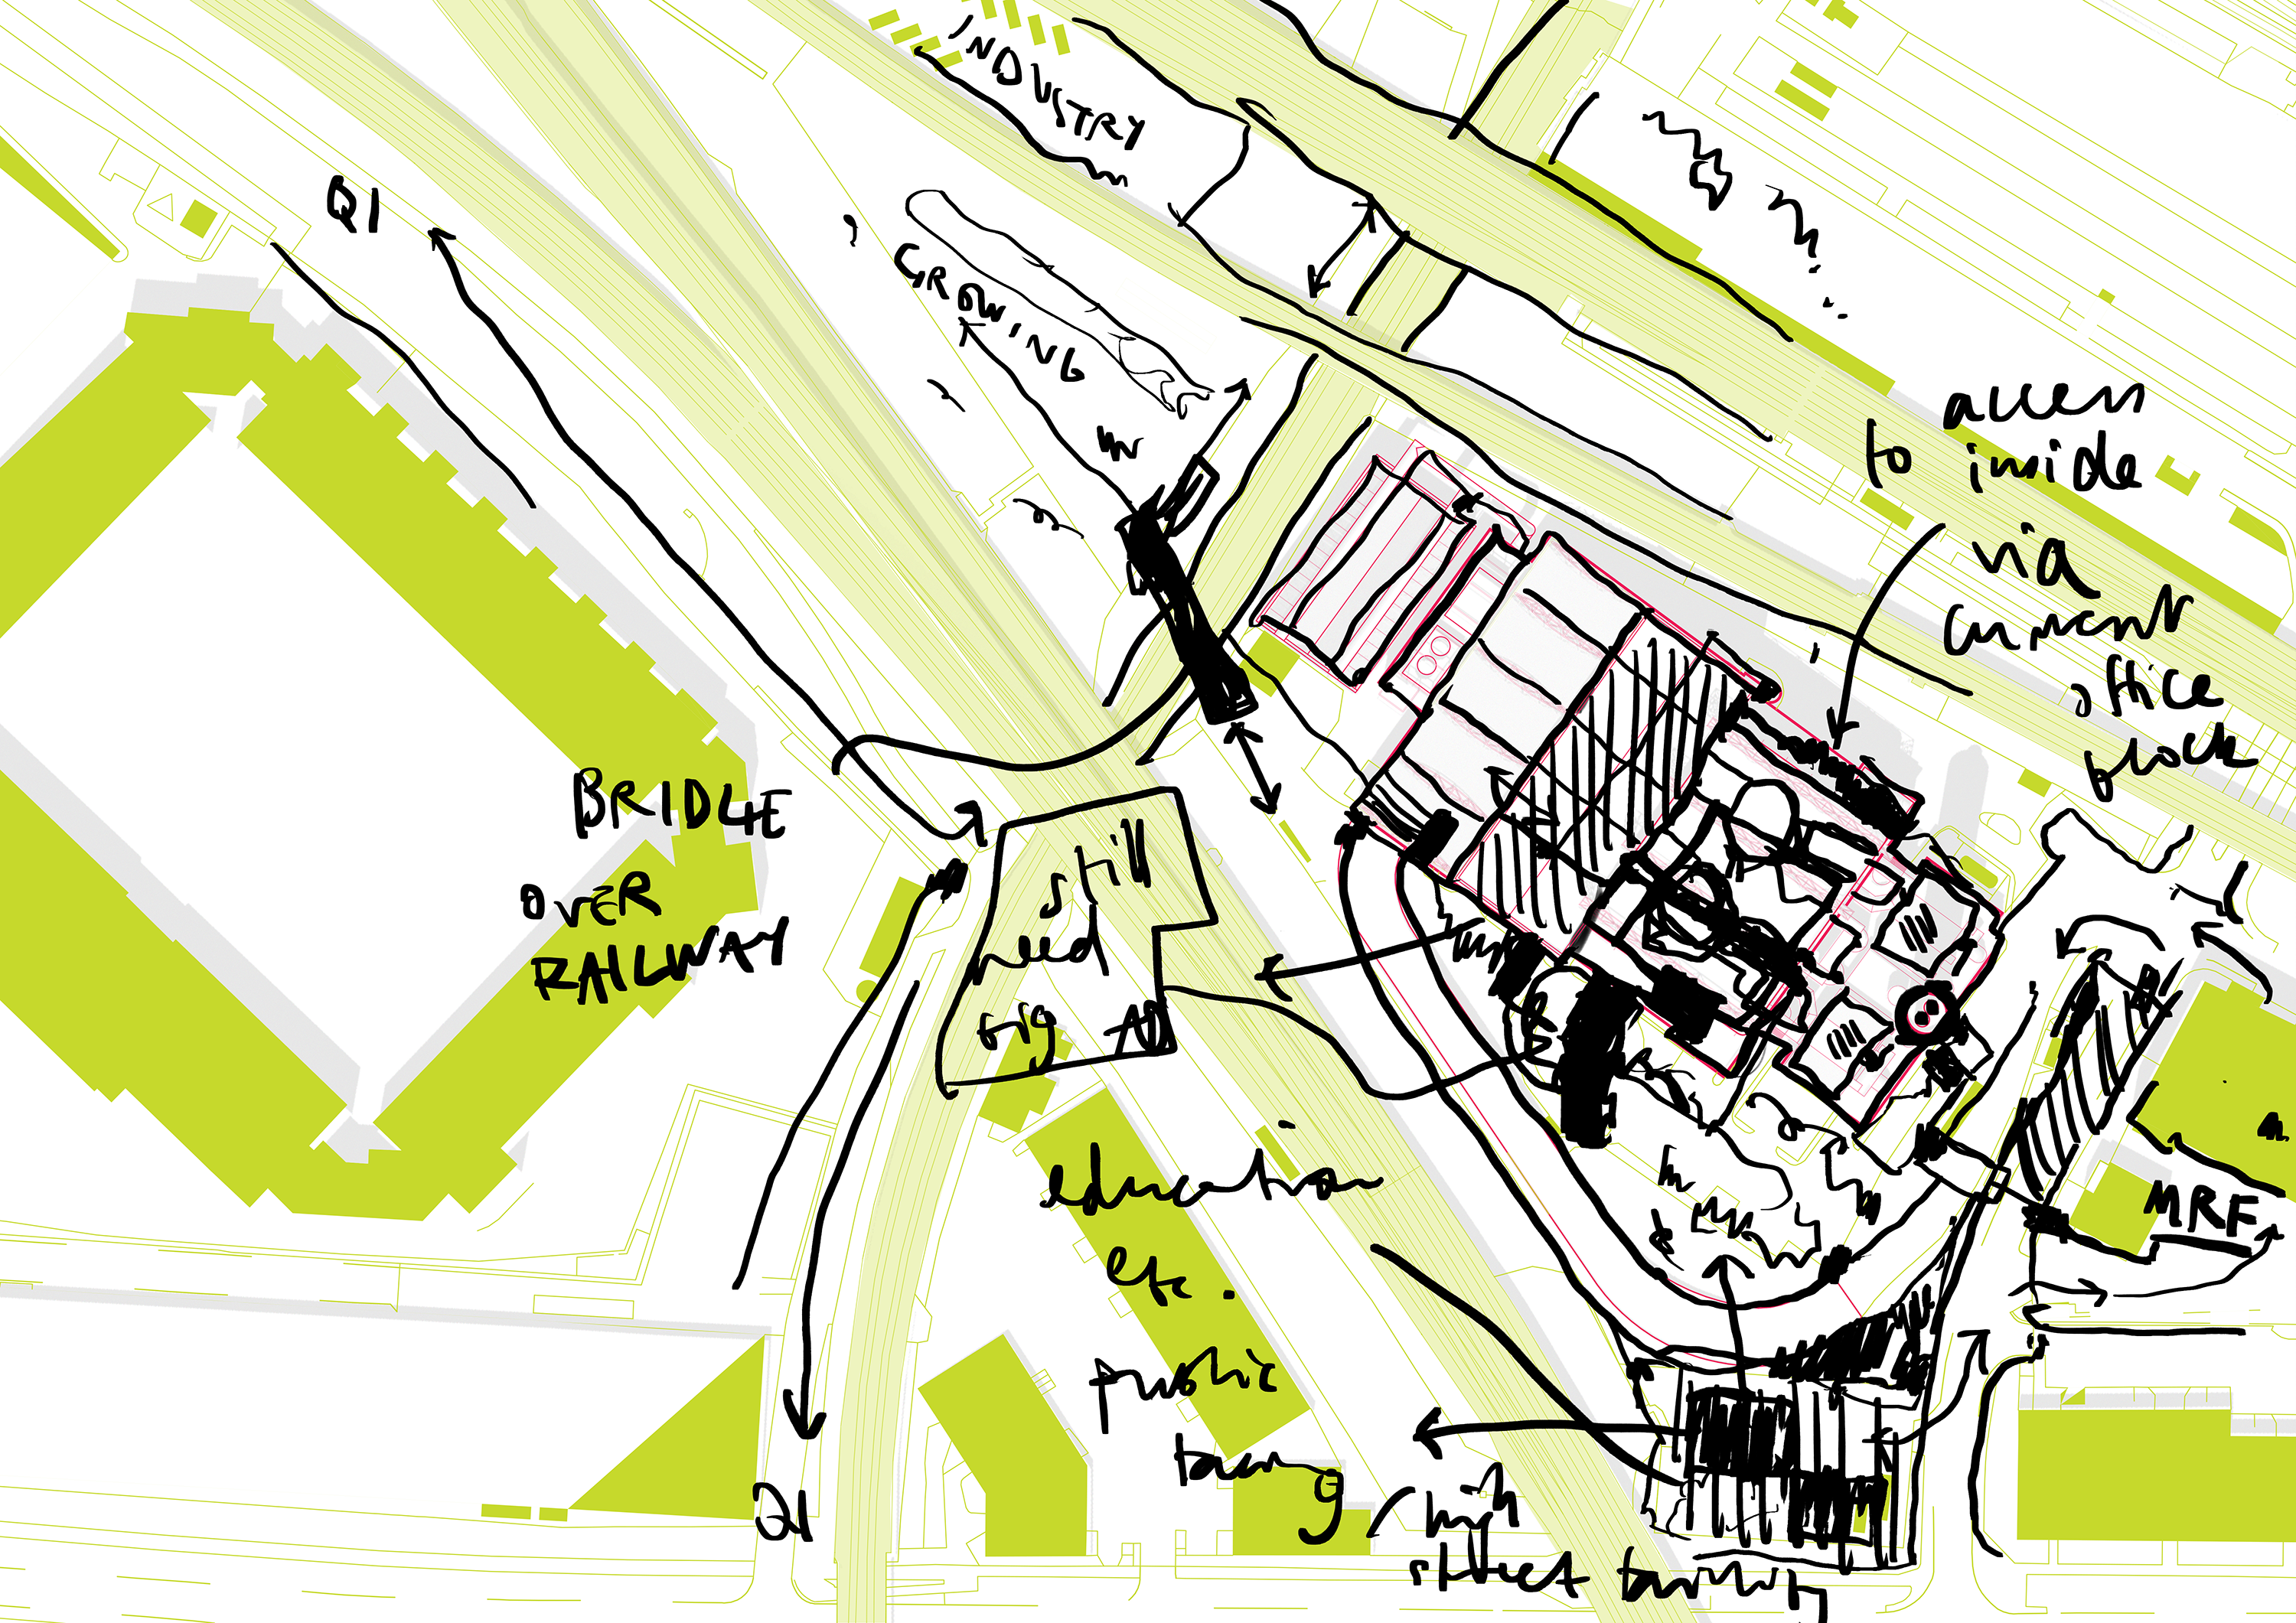 INDUSTRY
Q1
GROWING
access
to inside
via
current
office
block
BRIDGE
OVER
RAILWAY
still
need
MRF
education
etc.
public
facing
/ high
street
Q1